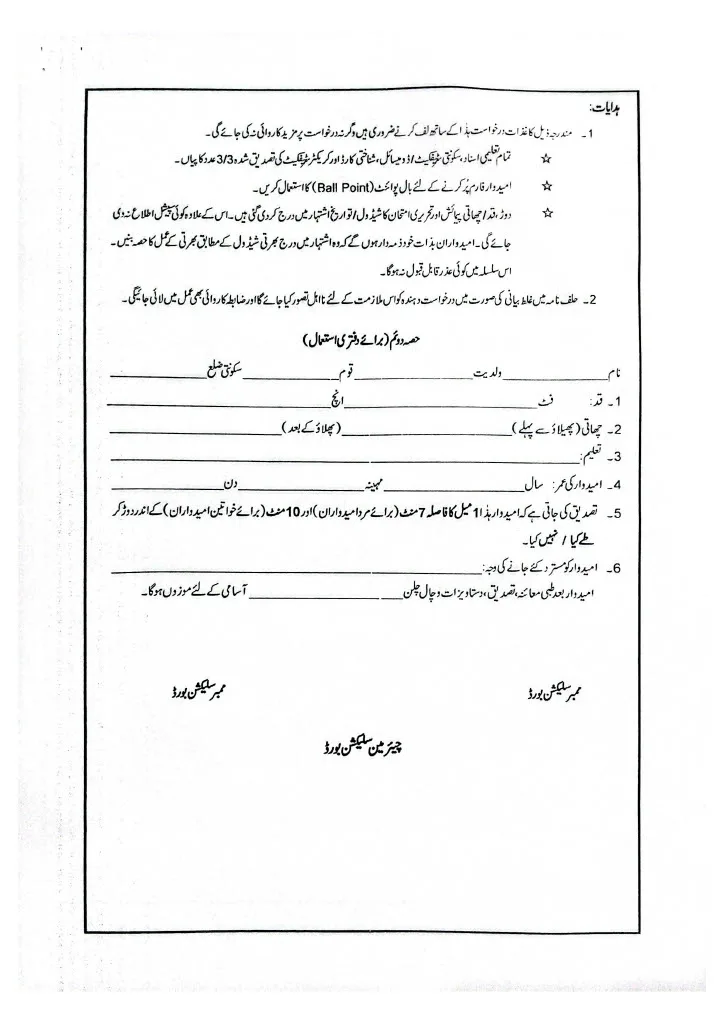 ہدایات:
1۔ مندرجہ ذیل کاغذات درخواست ہذا کے ساتھ لف کرنے ضروری ہیں وگرنہ درخواست پر مزید کاروائی نہ کی جائے گی۔
☆ تمام تعلیمی اسناد، سکونتی سرٹیفکیٹ/ڈومیسائل، شناختی کارڈ اور کریکٹر سرٹیفکیٹ کی تصدیق شدہ 3/3 عدد کاپیاں۔
☆ امیدوار فارم پُر کرنے کے لئے بال پوائنٹ (Ball Point) کا استعمال کریں۔
☆ دوڑ، قد/چھاتی پیمائش اور تحریری امتحان کا شیڈول/تواریخ اشتہار میں درج کر دی گئی ہیں۔ اس کے علاوہ کوئی سپیشل اطلاع نہ دی
جائے گی۔ امیدواران بذات خود ذمہ دار ہوں گے کہ وہ اشتہار میں درج بھرتی شیڈول کے مطابق بھرتی کے عمل کا حصہ بنیں۔
اس سلسلہ میں کوئی عذر قابل قبول نہ ہوگا۔
2۔ حلف نامہ میں غلط بیانی کی صورت میں درخواست دہندہ کو اس ملازمت کے لئے نااہل تصور کیا جائے گا اور ضابطہ کاروائی بھی عمل میں لائی جائیگی۔
حصہ دوئم (برائے دفتری استعمال)
نام ____________ ولدیت ____________ قوم ____________ سکونتی ضلع ____________
1۔ قد: فٹ ____________ انچ ____________
2۔ چھاتی (پھیلاؤ سے پہلے) ____________ (پھیلاؤ کے بعد) ____________
3۔ تعلیم: ____________
4۔ امیدوار کی عمر: سال ____________ مہینہ ____________ دن ____________
5۔ تصدیق کی جاتی ہے کہ امیدوار ہذا 1 میل کا فاصلہ 7 منٹ (برائے مرد امیدواران) اور 10 منٹ (برائے خواتین امیدواران) کے اندر دوڑ کر
طے کیا / نہیں کیا۔
6۔ امیدوار کو مسترد کئے جانے کی وجہ: ____________
امیدوار بعد طبی معائنہ، تصدیق، دستاویزات و چال چلن ____________ آسامی کے لئے موزوں ہوگا۔
ممبر سلیکشن بورڈ ممبر سلیکشن بورڈ
چیئرمین سلیکشن بورڈ